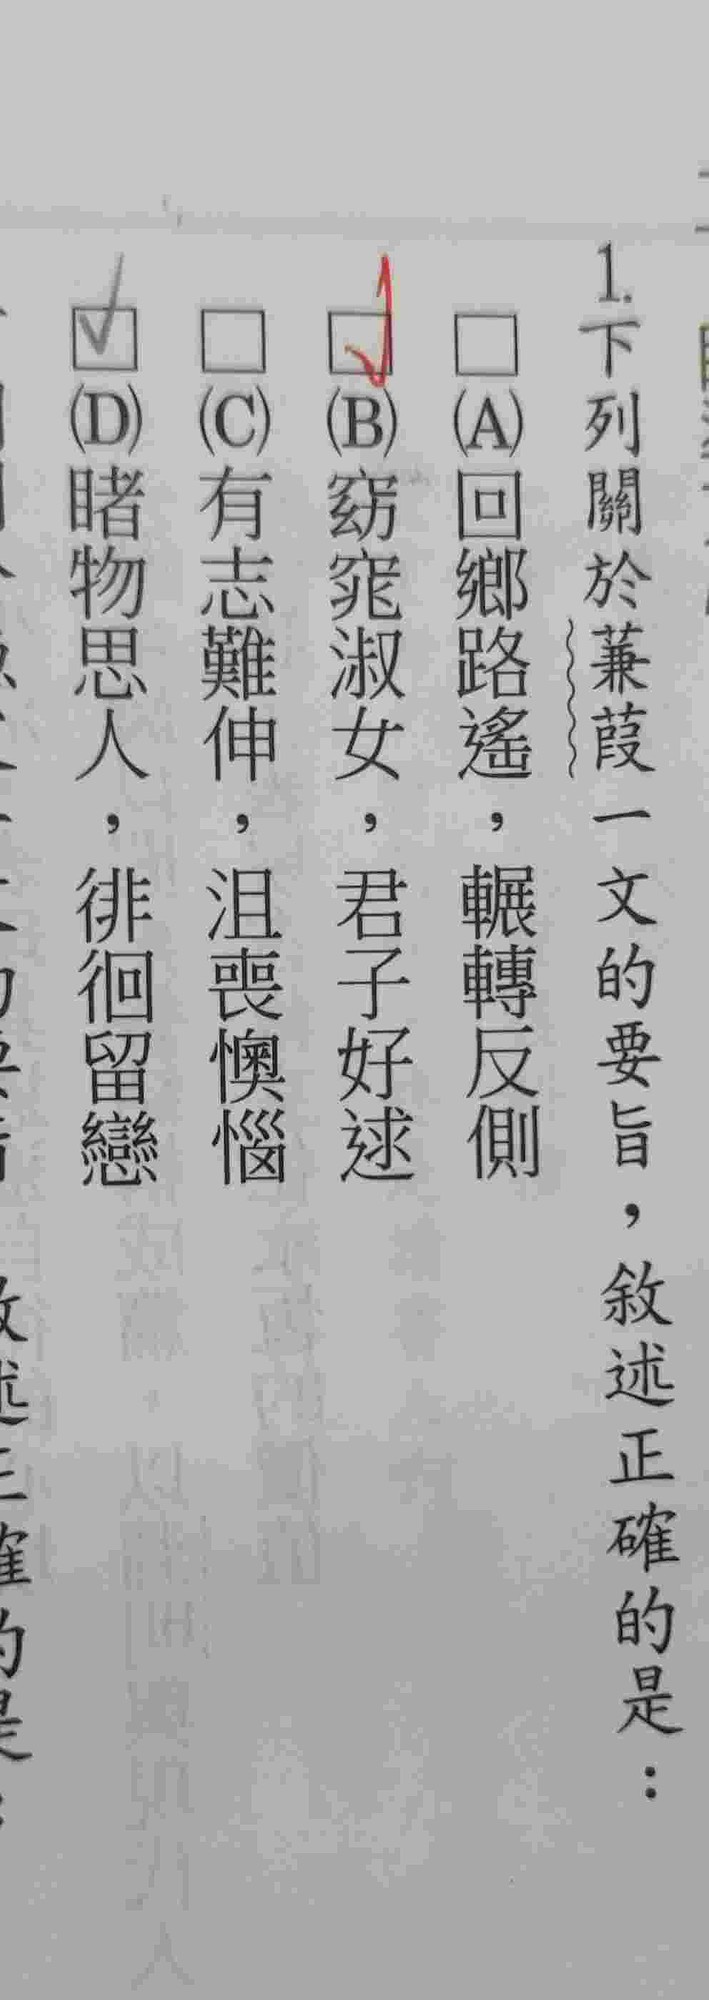 1.下列關於蒹葭一文的要旨，敘述正確的是：
□(A)回鄉路遙，輾轉反側
□(B)窈窕淑女，君子好逑
□(C)有志難伸，沮喪懊惱
☑(D)睹物思人，徘徊留戀